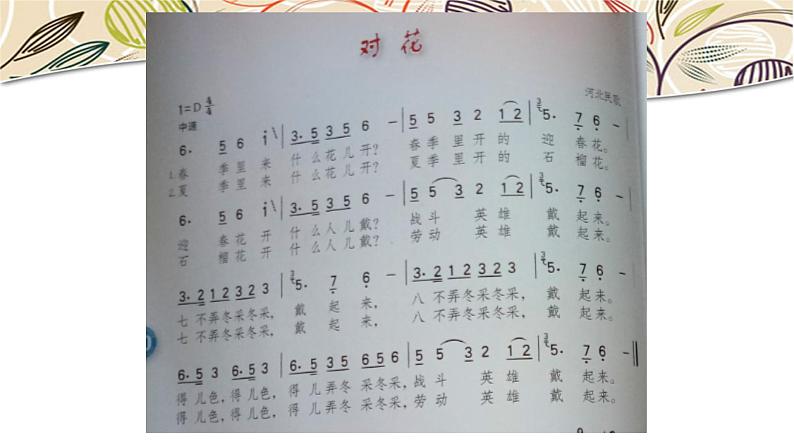 对花
1=D 4/4
河北民歌
中速
6· 5 6 i | 3·5 3 5 6 － | 5 5 3 2 1 2 | 5· 7 6 －
1.春 季里来 什么花儿开? 春季里开的 迎 春花。
2.夏 季里来 什么花儿开? 夏季里开的 石 榴花。
6· 5 6 i | 3·5 3 5 6 － | 5 5 3 2 1 2 | 5· 7 6 －
迎 春花开 什么人儿戴? 战斗 英雄 戴 起来。
石 榴花开 什么人儿戴? 劳动 英雄 戴 起来。
3·2 1 2 3 2 3 | 5· 7 6 － | 3·2 1 2 3 2 3 | 5· 7 6 －
七不弄冬采冬采， 戴 起 来， 八不弄冬采冬采， 戴 起来。
七不弄冬采冬采， 戴 起 来， 八不弄冬采冬采， 戴 起来。
6·5 3 6·5 3 | 6·5 3 5 6 5 6 | 5 5 3 2 1 2 | 5· 7 6 －
得儿色，得儿色， 得儿弄冬 采冬采，战斗 英雄 戴 起来。
得儿色，得儿色， 得儿弄冬 采冬采，劳动 英雄 戴 起来。